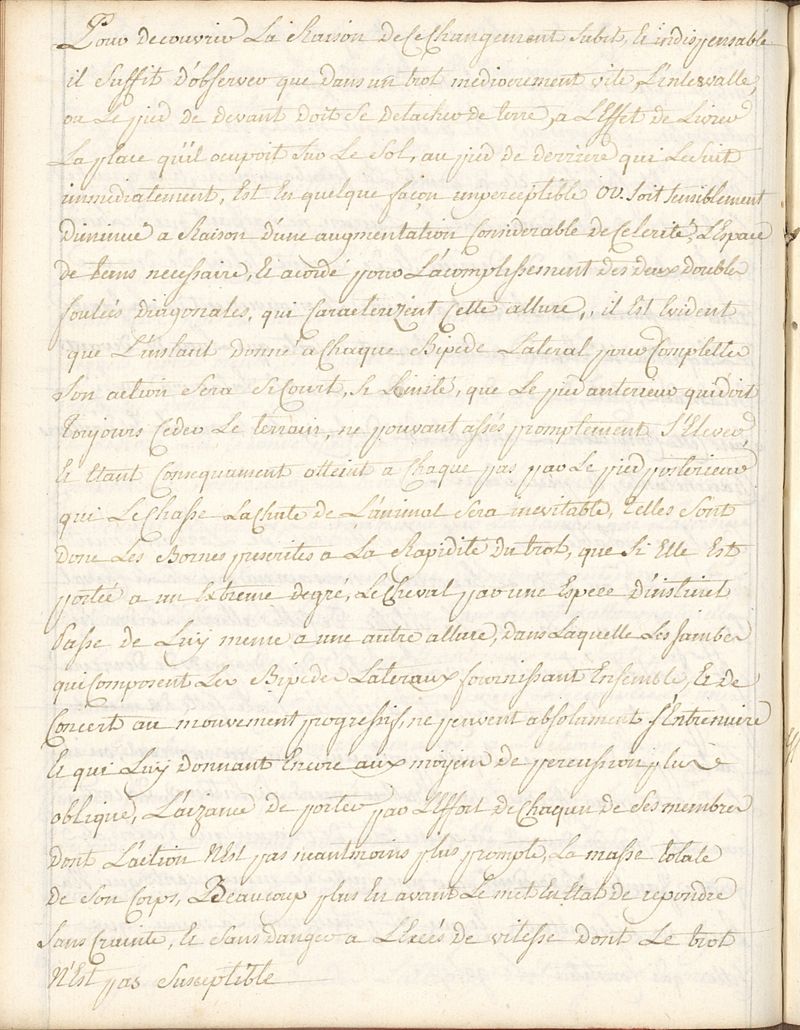 Pour decouvrir La Raison de Ce Changement Subit, Et indispensable
il Suffit d'observer que dans un trot mediocrement vite, L'intervalle,
ou Le pied de devant doit Se detacher de terre, a L'Effet de Livrer
La place qu'il ocupoit Sur Le Sol, au pied de derriere qui Le Suit
immediatement, Est En quelque façon imperceptible OU. Soit Sensiblement
Diminué a Raison d'une augmentation Considerable de Celerité, L'Espace
de tems necessaire, Et acordé pour L'acomplissement des deux doubles
foulées diagonales, qui Caracterizent Cette allure,, il Est Evident
que L'instant donné a Chaque Bipede Lateral pour Completter
Son action Sera Si Court, Si Limité, que Le pied anterieur qui doit
toujours Ceder Le terrain, ne pouvant assés promptement S'Elever
Et Etant Consequament atteint a Chaque pas par Le pied posterieur
qui Le Chasse La Chute de L'animal Sera inevitable, Telles Sont
donc Les Bornes prescrites a La Rapidité du trot, que Si Elle Est
portée a un Extreme degré, Le Cheval par une Espece d'instinct
Passe de Luy meme a une autre allure, dans Laquelle Les jambes
qui Composent Les Bipedes Lateraux fournissant Ensemble, Et de
Concert au mouvement progressif, ne peuvent absolument S'Entrenuire
Et qui Luy donnant Encore aux moyens de percussion plus
oblique, L'aizance de porter par L'Effort de Chaqun de Ses membres
dont L'action N'Est pas neantmoins plus prompte, La masse totale
de Son Corps, Beaucoup plus En avant Le met En Etat de repondre
Sans Crainte, Et Sans danger a L'Excés de vitesse dont Le trot
N'Est pas Susceptible